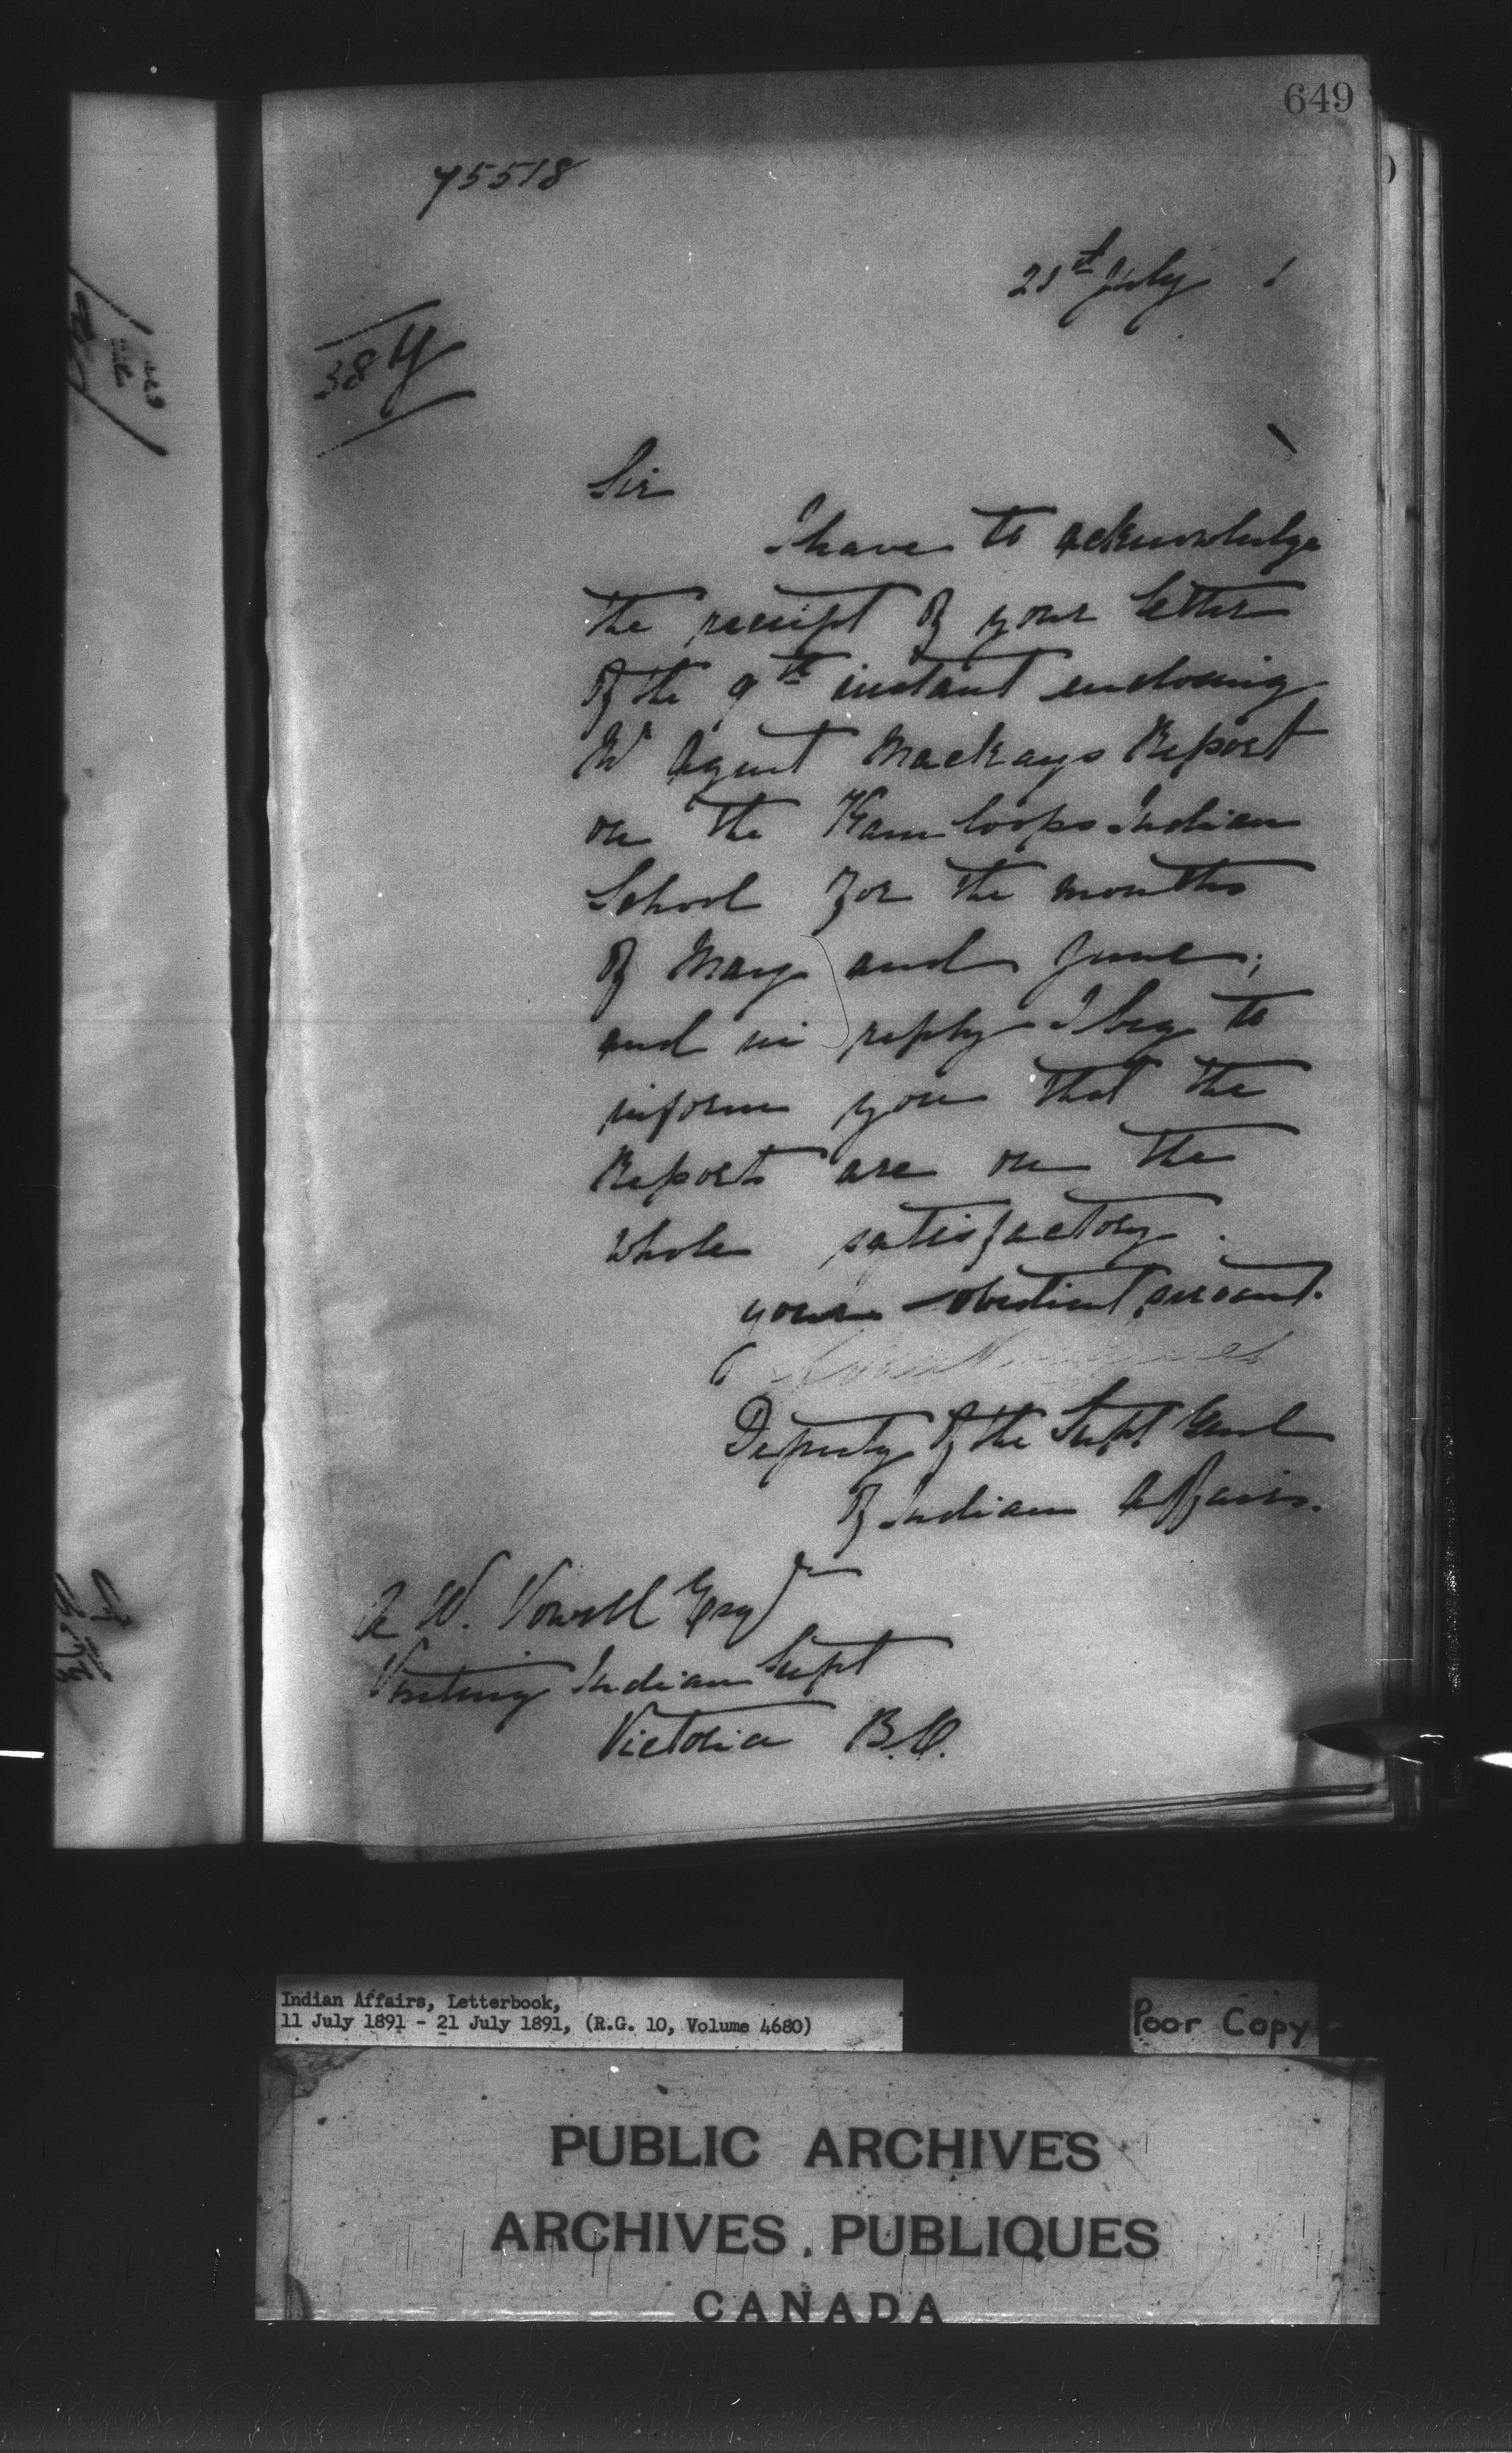 649
75518
21st July 1
38 y
Sir
I have to acknowledge
the receipt of your letter
of the 9th instant enclosing
Mr Agent Mackays Report
on the Kamloops Indian
School for the months
of May and June;
and in reply I beg to
inform you that the
Reports are on the
whole satisfactory.
your obedient servant.
Deputy of the Supt Genl
of Indian Affairs.
A W. Vowell Esqr
Visiting Indian Supt
Victoria B.C.
Indian Affairs, Letterbook,
11 July 1891 - 21 July 1891, (R.G. 10, Volume 4680)
Poor Copy
PUBLIC ARCHIVES
ARCHIVES PUBLIQUES
CANADA